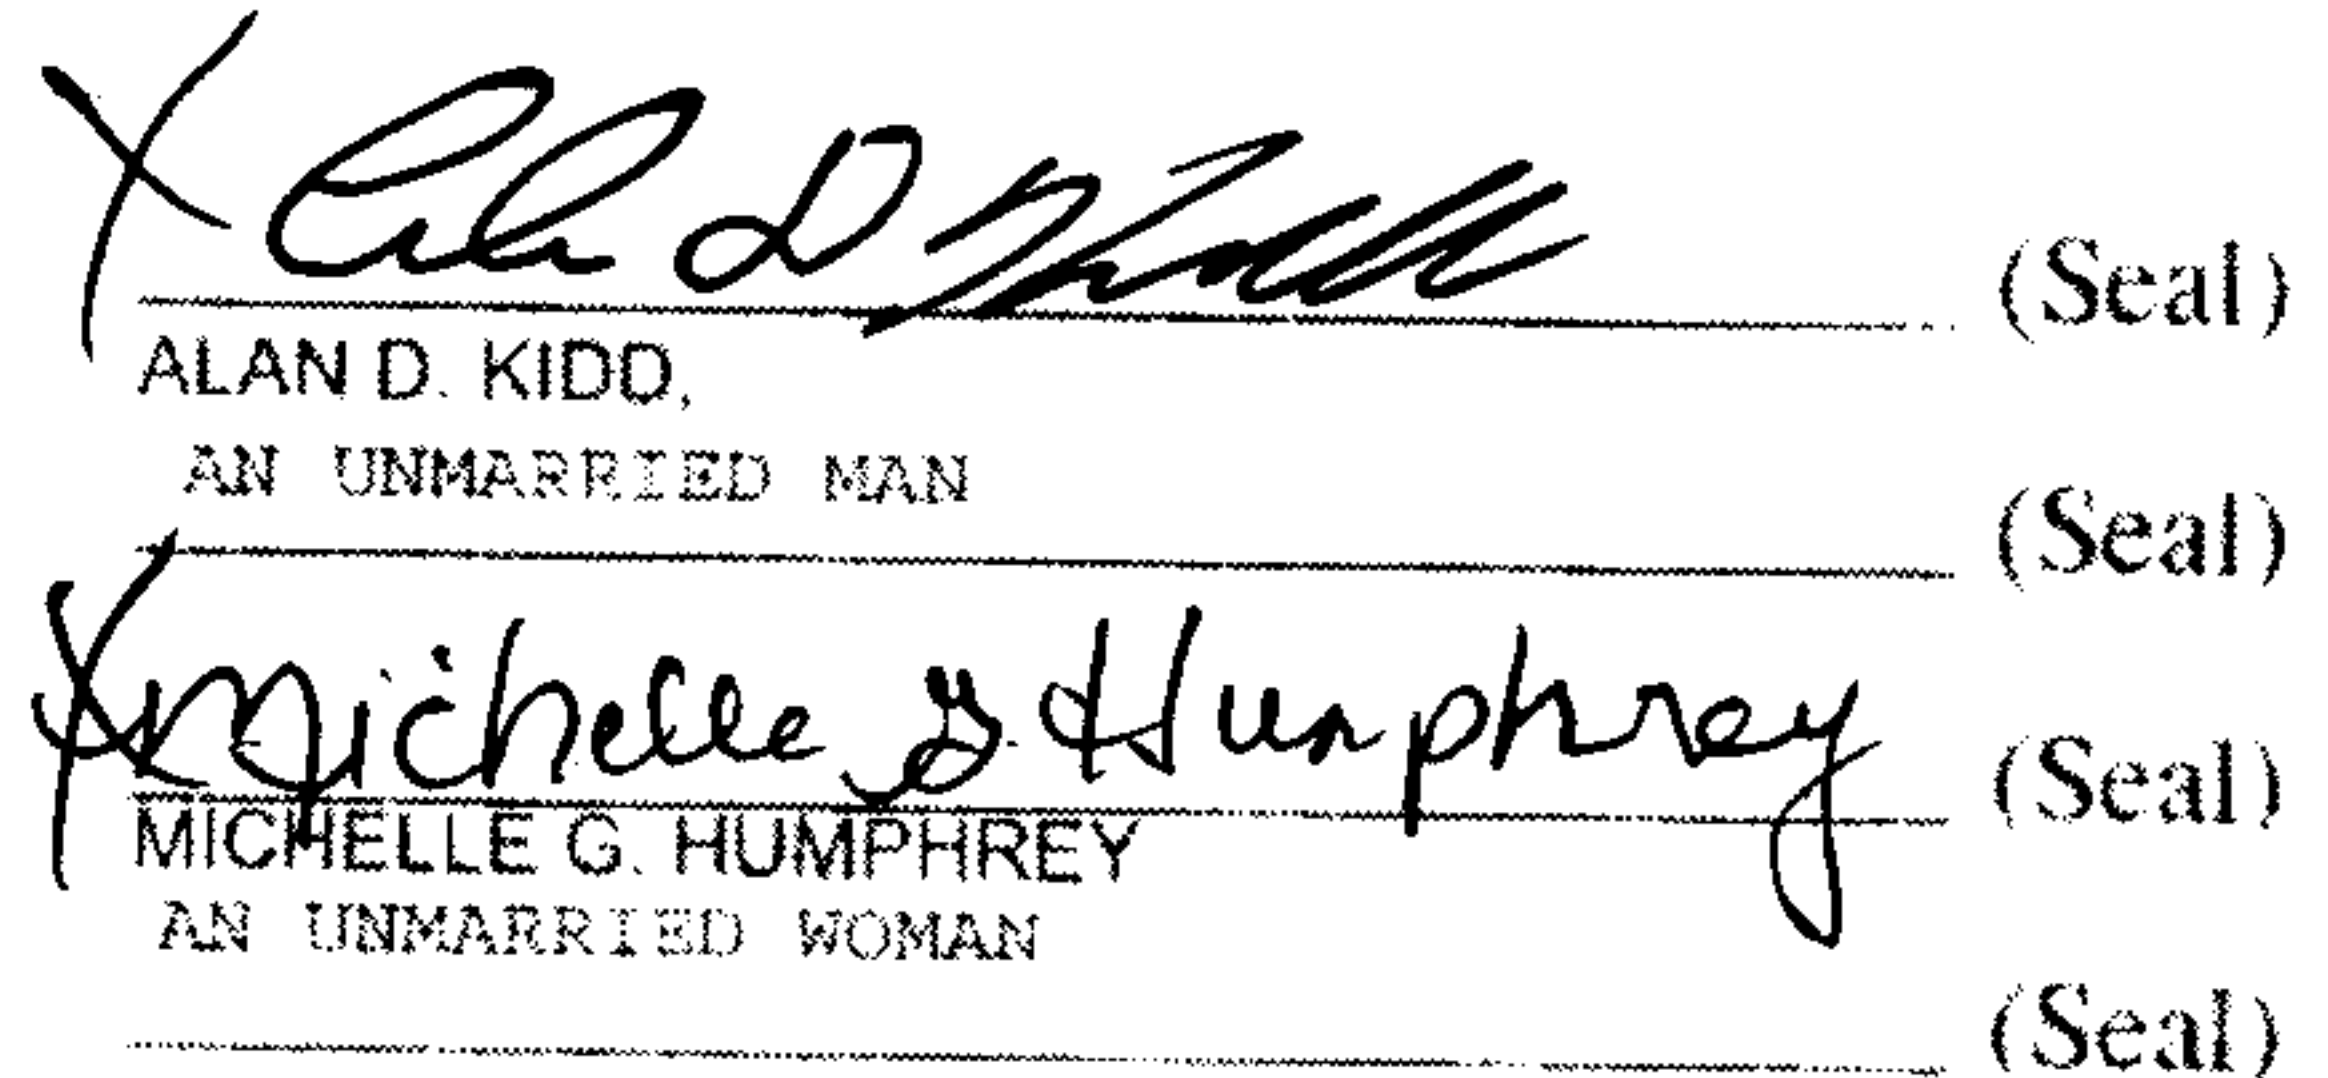 X Alan D Kidd (Seal)
ALAN D. KIDD,
AN UNMARRIED MAN
(Seal)
X Michelle G Humphrey (Seal)
MICHELLE G. HUMPHREY
AN UNMARRIED WOMAN
(Seal)